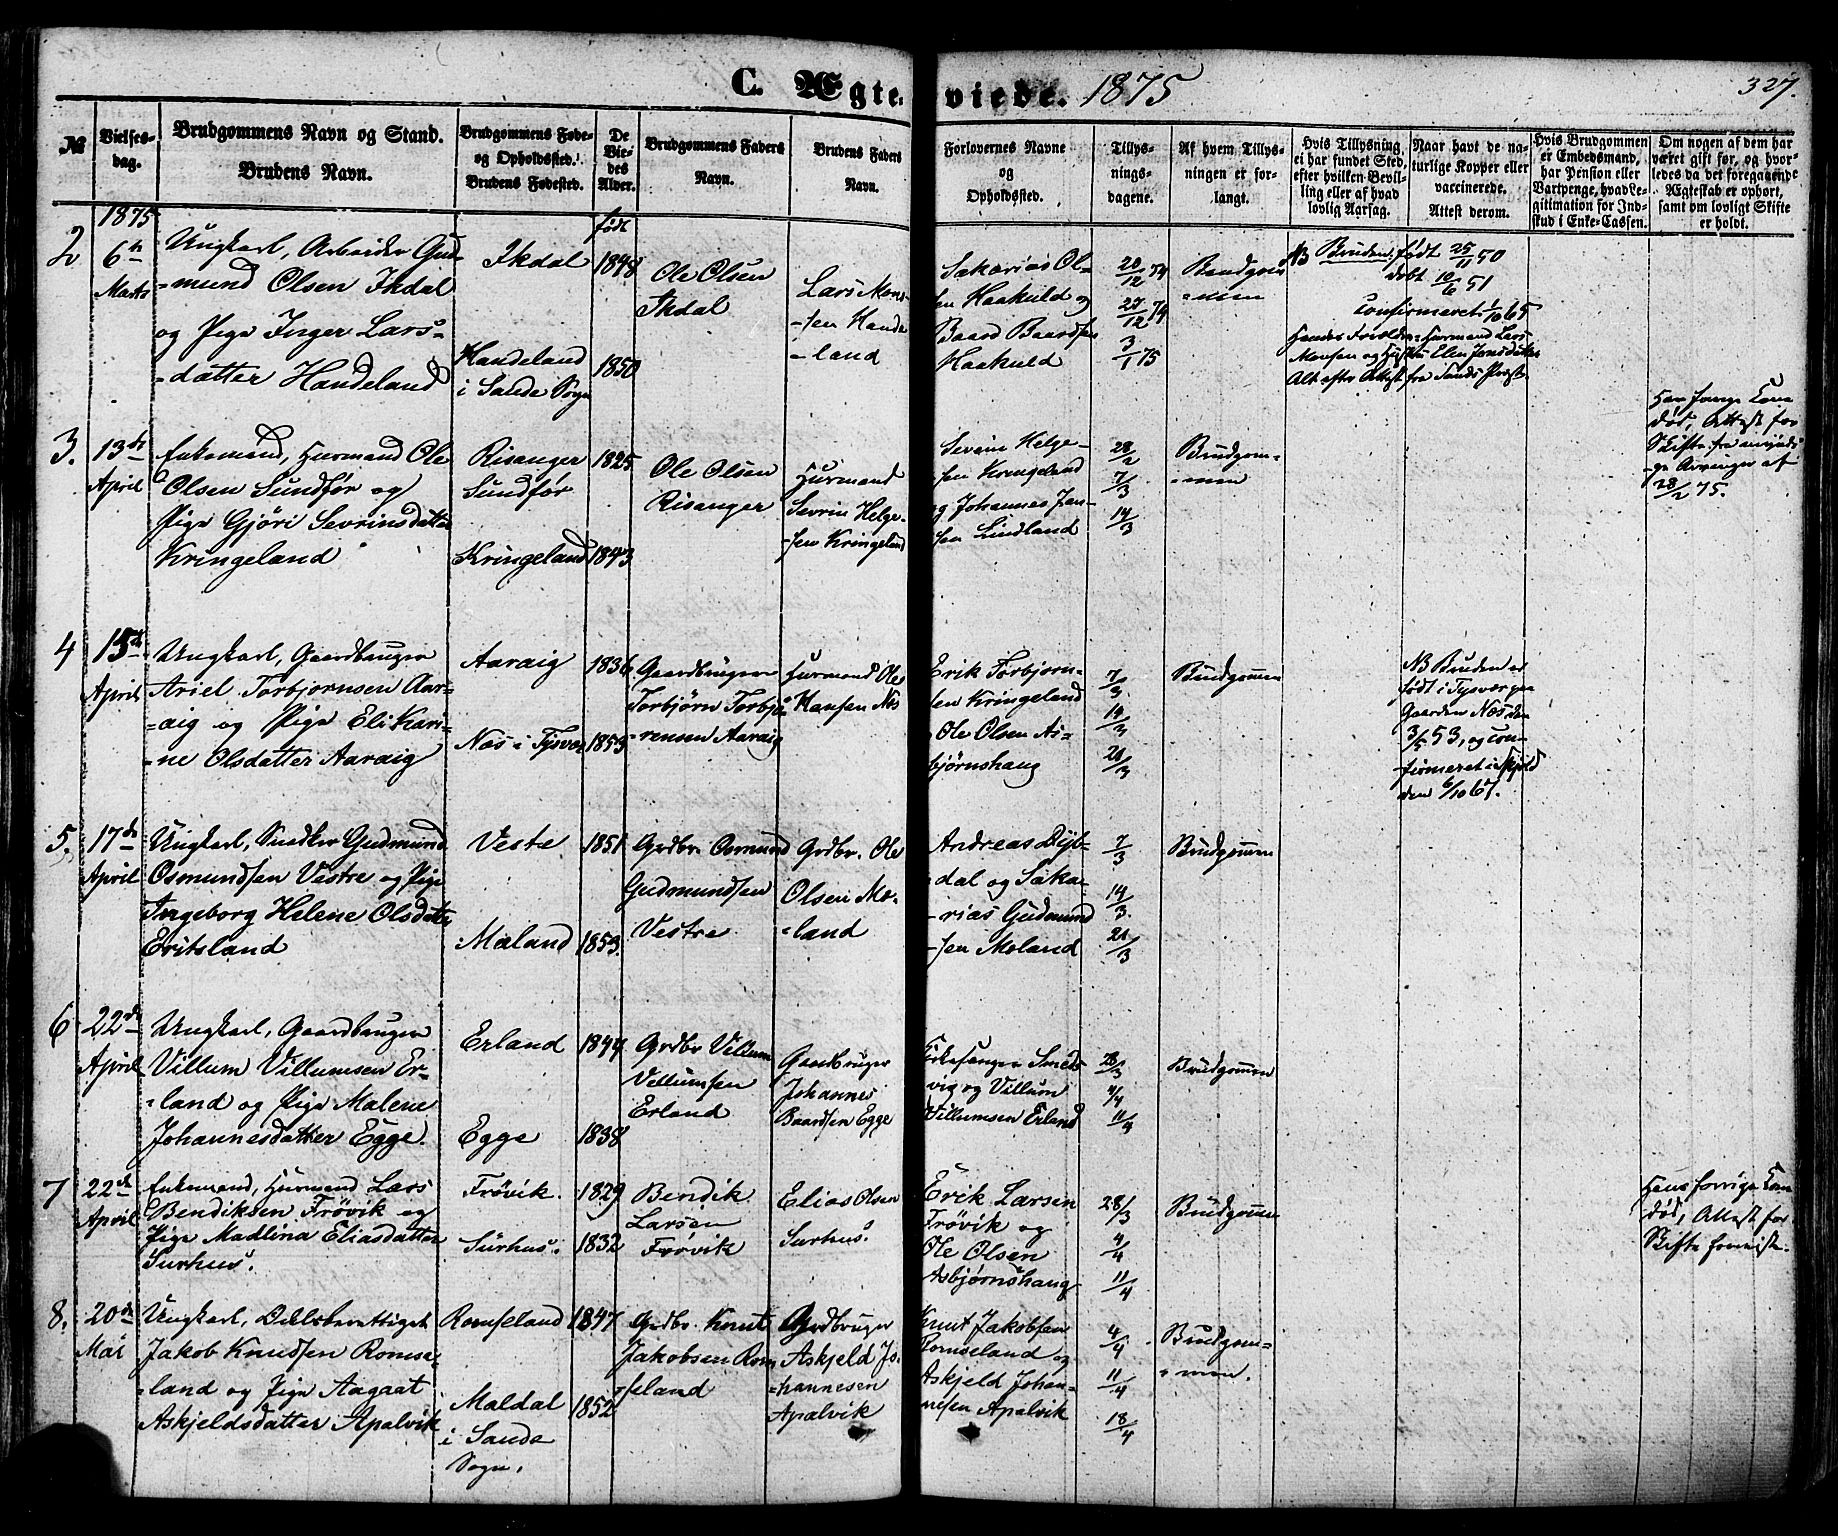 C. Ægteviede. 1875
327.
№
Vielsesdag.
Brudgommens Navn og Stand.
Brudens Navn.
Brudgommens Føde- og Opholdssted.
Brudens Fødested.
De Viedes Alder.
Brudgommens Faders Navn.
Brudens Faders Navn.
Forlovernes Navne og Opholdssted.
Tillysningsdagene.
Af hvem Tillysningen er forlangt.
Hvis Tillysning ei har fundet Sted, efter hvilken Bevilling eller af hvad lovlig Aarsag.
Naar havt de naturlige Kopper eller vaccinerede. Attest derom.
Hvis Brudgommen er Embedsmand, har Pension eller Vartpenge, hvad Legitimation for Indskud i Enke-Cassen.
Om nogen af dem har været gift før, og hvorledes da det foregaaende Ægteskab er ophørt, samt om lovligt Skifte er holdt.
1875
født
2
6te
Marts
Ungkarl, Arbeider Gud-
-mund Olsen Ikdal
og Pige Inger Lars-
-datter Handeland
Ikdal
Handeland
i Sande Sogn
1848
1850
Ole Olsen
Ikdal
Lars Mons-
-sen Hande
-land
Sakarias Ol-
-sen Haakuld og
Baard Baardsen
Haakuld
20/12 74
27/12 74
3/1 75
Brudgom
-men
NB Bruden født 25/11 50
døbt 10/6 51
Confirmeret 1/10 65
Hendes Forældre: Husmand Lars
Monsen og Hustru Elen Jonsdatter
Alt efter Attest fra Sands Præst
3.
13de
April
Enkemand, Husmand Ole
Olsen Sundfør og
Pige Gjøri Sevrinsdatter
Kringeland
Risanger
Sundfør
Kringeland
1825
1843
Ole Olsen
Risanger
Husmand
Sevrin Helge-
-sen Kringeland
Sevrin Helge-
-sen Kringeland
og Johannes Jen-
-sen Lindland
28/2
7/3
14/3
Brudgom-
-men
Hans forrige Kone
død, Attest for
Skifte fra myndi-
-ge Arvinger af
28/2 75.
4
15de
April
Ungkarl, Gaardbruger
Ariel Torbjornsen Aar-
-aig og Pige Eli Kari-
-ne Olsdatter Aaraig
Aaraig
Næs i Tysvær
1836
1853
Gaardbruger
Torbjørn Torbjø-
-rensen Aaraig
Husmand Ole
Hansen Næs
Erik Torbjørn-
-sen Kringeland
Ole Olsen As-
bjørnshaug
7/3
14/3
21/3
Brudgommen
NB Bruden er
født i Tysvær paa
Gaarden Næs den
3/5 53, og con-
-firmeret i Skjold
den 6/10 67.
5.
17de
April
Ungkarl, Snedker Gudmund
Osmundsen Vestre og Pige
Ingeborg Helene Olsdatter
Eritsland
Vestre
Mæland
1851
1853
Grdbr. Osmund
Gudmundsen
Vestre
Grdbr. Ole
Olsen Mæ-
-land
Andreas Dyb-
-dal og Saka-
-rias Gudmund
-sen Mæland
7/3
14/3
21/3
Brudgommen
6
22de
April
Ungkarl, Gaardbruger
Villum Villumsen Er-
-land og Pige Malene
Johannesdatter Egge.
Erland
Egge
1844
1838
Grdbr Villum
Villumsen
Erland
Gaardbruger
Johannes
Baardsen Egge
Kirkesanger Smeds-
vig og Villum
Villumsen Erland
28/3
4/4
11/4
Brudgommen
7
22de
April
Enkemand, Husmand Lars
Bendiksen Frövik og
Pige Madlina Eliasdatter
Surhus.
Frövik.
Surhus.
1829
1832
Bendik
Larsen
Frövik
Elias Olsen
Surhus.
Erik Larsen
Frövik og
Ole Olsen
Asbjørnshaug
28/3
4/4
11/4
Brudgommen
Hans forrige Kone
død, Attest for
Skifte foreviist.
8.
20de
Mai
Ungkarl, Delsberettiget
Jakob Knudsen Romse-
-land og Pige Aagaat
Askjeldsdatter Apalvik
Romseland
Maldal
i Sande
Sogn.
1847
1852
Grdbr. Knut
Jakobsen Rom
-seland
Grdbruger
Askjeld Jo-
-hannesen
Apalvik
Knut Jakobsen
Romseland og
Askjeld Johan-
nesen Apalvik
4/4
11/4
18/4
Brudgom-
-men.